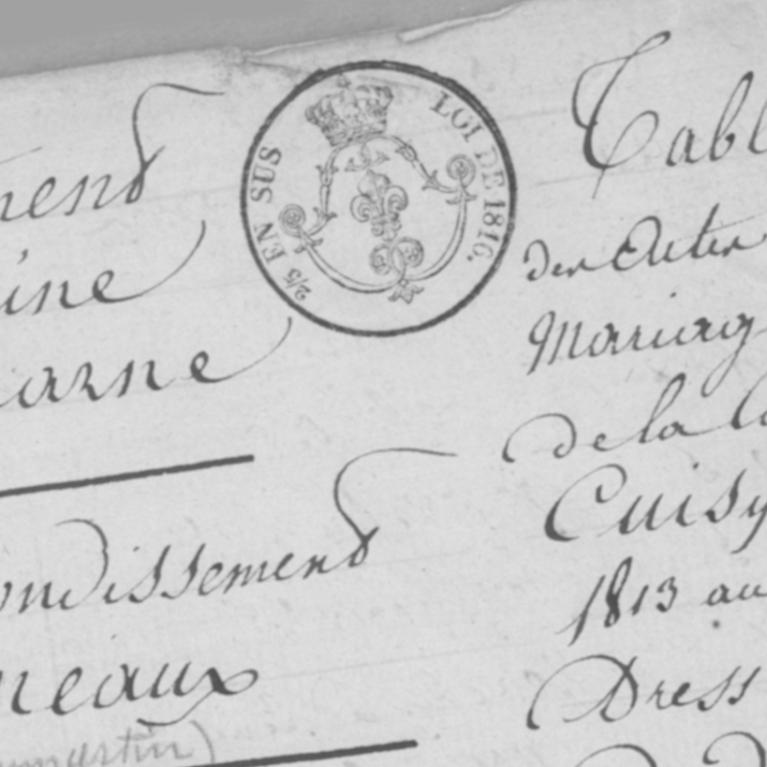 ment
ine
arne
ondissement
meaux
martin)
2/5 EN SUS
LOI DE 1816.
Tabl
des Actes
Mariag
de la Co
Cuisy
1813 au
Dress